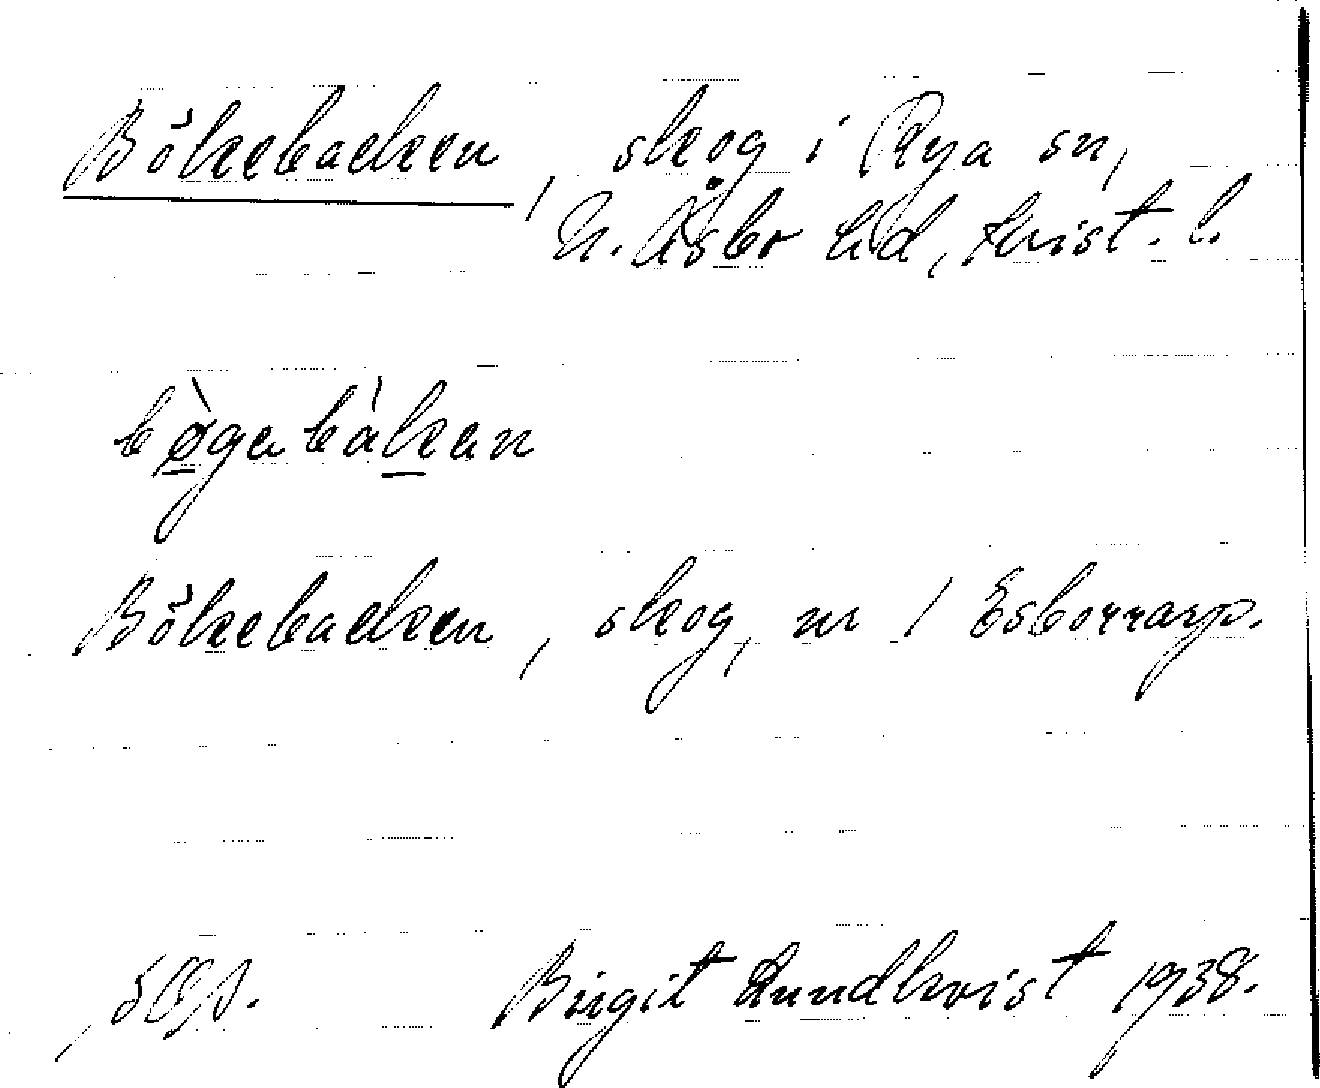 Bökebacken, skog i Rya sn,
N. Åsbo hd, Krist. l.
bø̀gabàkan
Bökebacken, skog, nr 1 Esborrarp.
Birgit Lundkvist 1938.